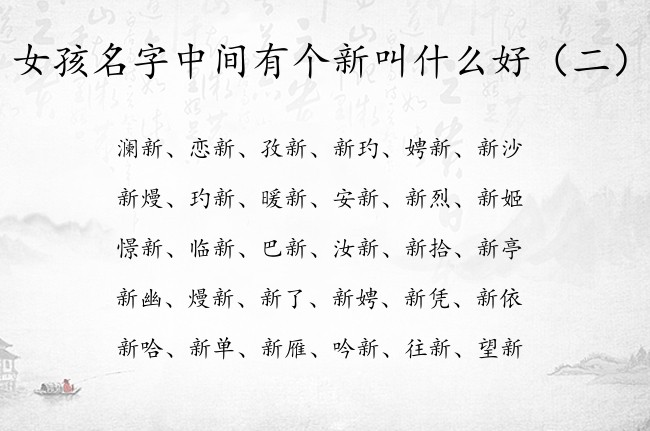 女孩名字中间有个新叫什么好（二）
澜新、恋新、孜新、新玓、娉新、新沙
新熳、玓新、暖新、安新、新烈、新姬
憬新、临新、巴新、汝新、新拾、新亭
新幽、熳新、新了、新娉、新凭、新依
新哈、新单、新雁、吟新、往新、望新